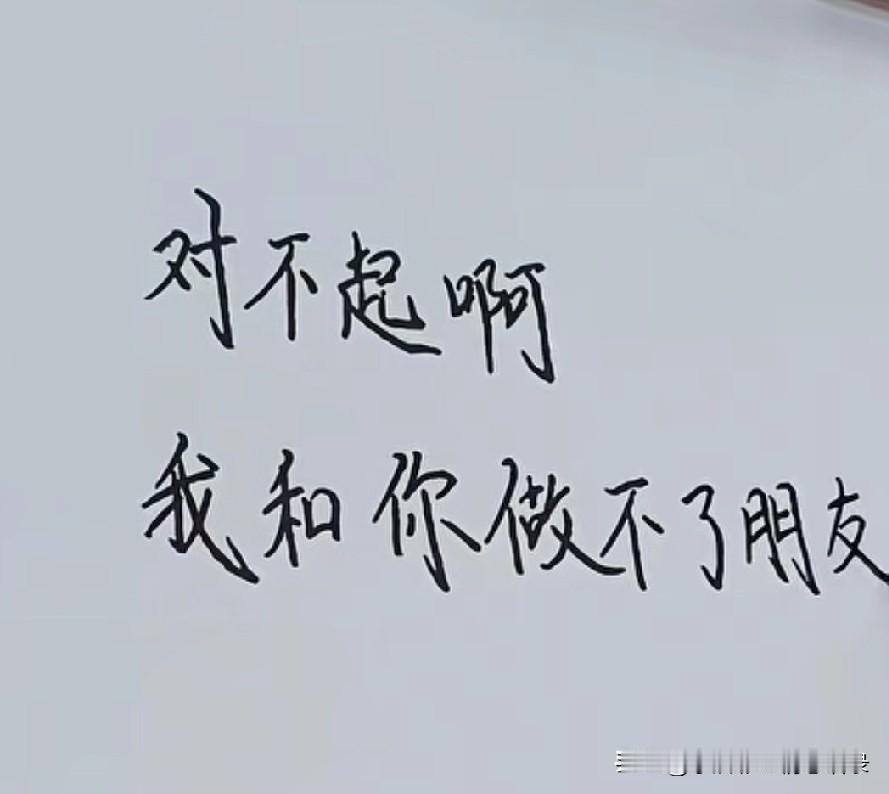 对不起啊
我和你做不了朋友